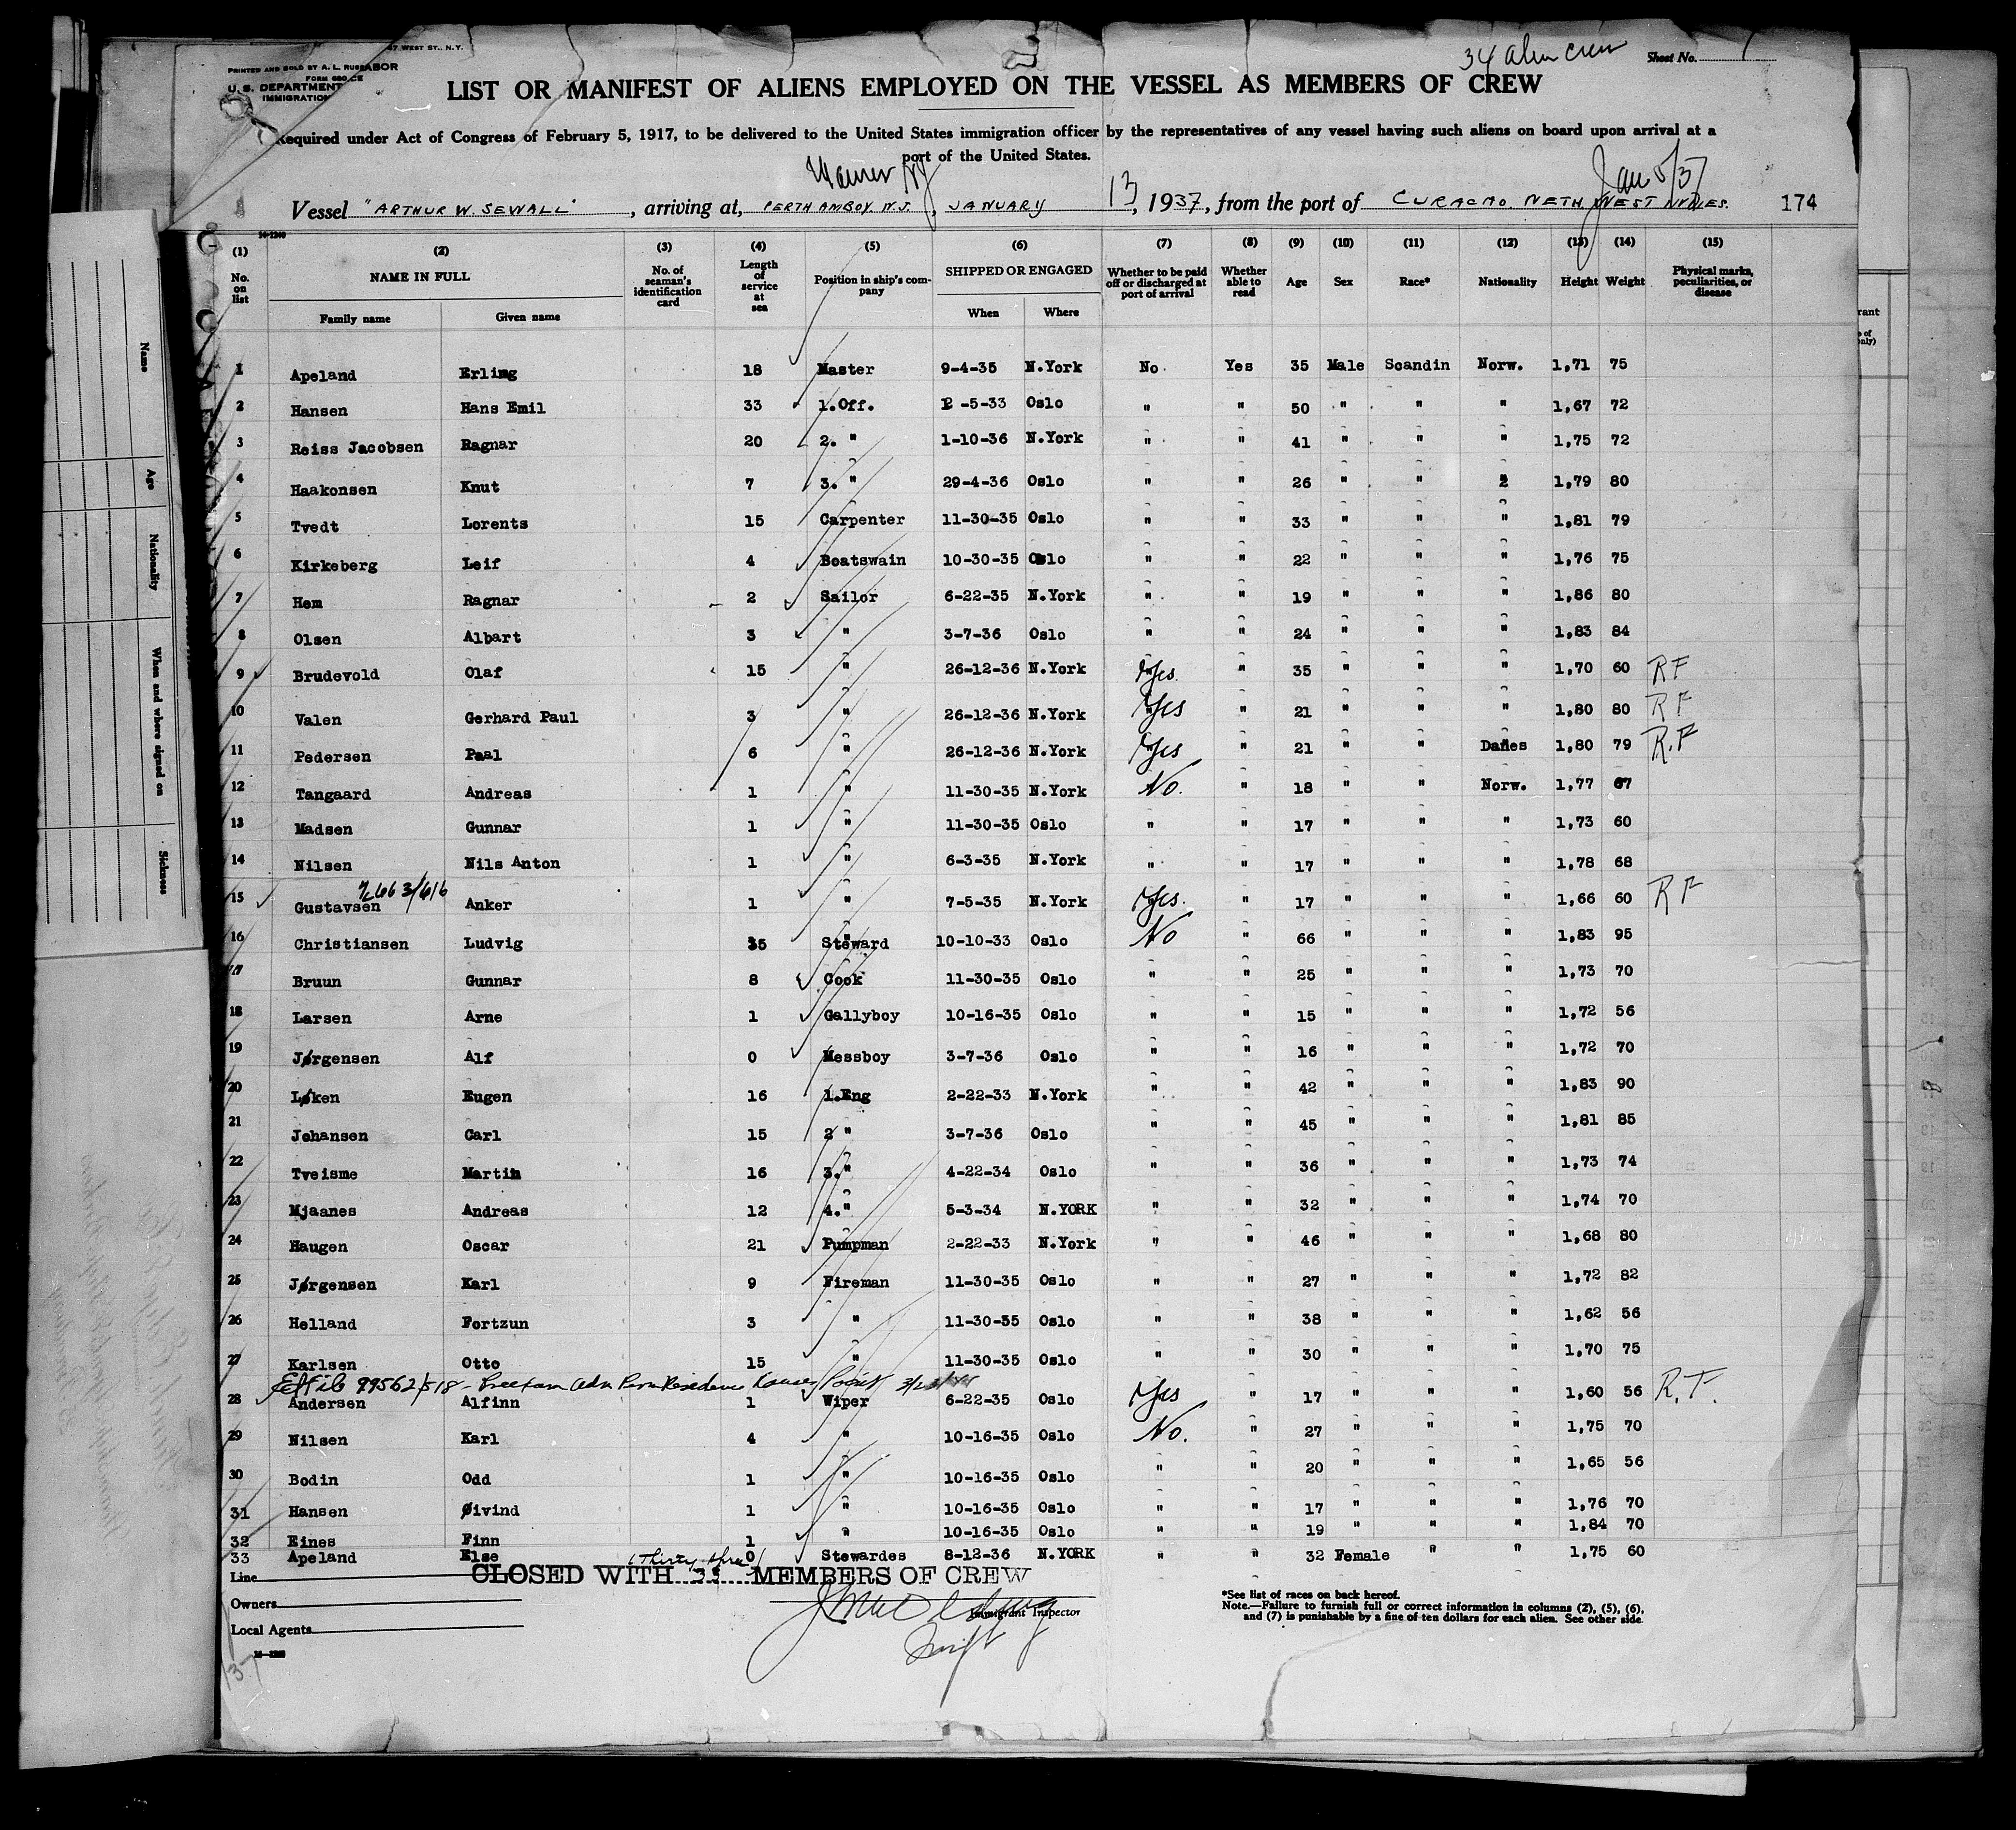 47 WEST ST., N.Y.
PRINTED AND SOLD BY A. L. RUS ABOR
FORM 680 CE
U. S. DEPARTMENT
IMMIGRATION
34 alien crew
Sheet No. 1
LIST OR MANIFEST OF ALIENS EMPLOYED ON THE VESSEL AS MEMBERS OF CREW
Required under Act of Congress of February 5, 1917, to be delivered to the United States immigration officer by the representatives of any vessel having such aliens on board upon arrival at a
port of the United States.
Warner NJ
Jan 5/37
Vessel "ARTHUR W. SEWALL", arriving at, PERTH AMBOY. N.J., JANUARY 13, 1937, from the port of CURACAO. NETH. WEST INDIES. 174
(1) (2) (3) (4) (5) (6) (7) (8) (9) (10) (11) (12) (13) (14) (15)
No. on list NAME IN FULL No. of seaman's identification card Length of service at sea Position in ship's company SHIPPED OR ENGAGED Whether to be paid off or discharged at port of arrival Whether able to read Age Sex Race* Nationality Height Weight Physical marks, peculiarities, or disease
Family name Given name When Where
1 Apeland Erling 18 Master 9-4-35 N.York No. Yes 35 Male Scandin Norw. 1,71 75
2 Hansen Hans Emil 33 1.Off. 2 -5-33 Oslo " " 50 " " " 1,67 72
3 Reiss Jacobsen Ragnar 20 2. " 1-10-36 N.York " " 41 " " " 1,75 72
4 Haakonsen Knut 7 3. " 29-4-36 Oslo " " 26 " " 2 1,79 80
5 Tvedt Lorents 15 Carpenter 11-30-35 Oslo " " 33 " " " 1,81 79
6 Kirkeberg Leif 4 Boatswain 10-30-35 Oslo " " 22 " " " 1,76 75
7 Hem Ragnar 2 Sailor 6-22-35 N.York " " 19 " " " 1,86 80
8 Olsen Albart 3 " 3-7-36 Oslo " " 24 " " " 1,83 84
9 Brudevold Olaf 15 " 26-12-36 N.York Yes " 35 " " " 1,70 60 RF
10 Valen Gerhard Paul 3 " 26-12-36 N.York Yes " 21 " " " 1,80 80 RF
11 Pedersen Paal 6 " 26-12-36 N.York Yes " 21 " " Danes 1,80 79 R.F
12 Tangaard Andreas 1 " 11-30-35 N.York No. " 18 " " Norw. 1,77 67
13 Madsen Gunnar 1 " 11-30-35 Oslo " " 17 " " " 1,73 60
14 Nilsen Nils Anton 1 " 6-3-35 N.York " " 17 " " " 1,78 68
15 Gustavsen Anker 1 " 7-5-35 N.York Yes. " 17 " " " 1,66 60 RF
16 Christiansen Ludvig 35 Steward 10-10-33 Oslo No " 66 " " " 1,83 95
17 Bruun Gunnar 8 Cook 11-30-35 Oslo " " 25 " " " 1,73 70
18 Larsen Arne 1 Gallyboy 10-16-35 Oslo " " 15 " " " 1,72 56
19 Jørgensen Alf 0 Messboy 3-7-36 Oslo " " 16 " " " 1,72 70
20 Løken Eugen 16 1.Eng 2-22-33 N.York " " 42 " " " 1,83 90
21 Johansen Carl 15 2 " 3-7-36 Oslo " " 45 " " " 1,81 85
22 Tveisme Martin 16 3." 4-22-34 Oslo " " 36 " " " 1,73 74
23 Mjaanes Andreas 12 4." 5-3-34 N.YORK " " 32 " " " 1,74 70
24 Haugen Oscar 21 Pumpman 2-22-33 N.York " " 46 " " " 1,68 80
25 Jørgensen Karl 9 Fireman 11-30-35 Oslo " " 27 " " " 1,72 82
26 Helland Fortzun 3 " 11-30-55 Oslo " " 38 " " " 1,62 56
27 Karlsen Otto 15 " 11-30-35 Oslo " " 30 " " " 1,70 75
99562/518
28 Andersen Alfinn 1 Wiper 6-22-35 Oslo Yes " 17 " " " 1,60 56 R.F.
29 Nilsen Karl 4 " 10-16-35 Oslo No. " 27 " " " 1,75 70
30 Bodin Odd 1 " 10-16-35 Oslo " " 20 " " " 1,65 56
31 Hansen Øivind 1 " 10-16-35 Oslo " " 17 " " " 1,76 70
32 Eines Finn 1 " 10-16-35 Oslo " " 19 " " " 1,84 70
33 Apeland Else 0 Stewardes 8-12-36 N.YORK " " 32 Female " " 1,75 60
(Thirty three)
Line CLOSED WITH 33 MEMBERS OF CREW
Owners
Immigrant Inspector
Local Agents
*See list of races on back hereof.
Note.—Failure to furnish full or correct information in columns (2), (5), (6),
and (7) is punishable by a fine of ten dollars for each alien. See other side.
Name
Age
Nationality
When and where signed on
Sickness